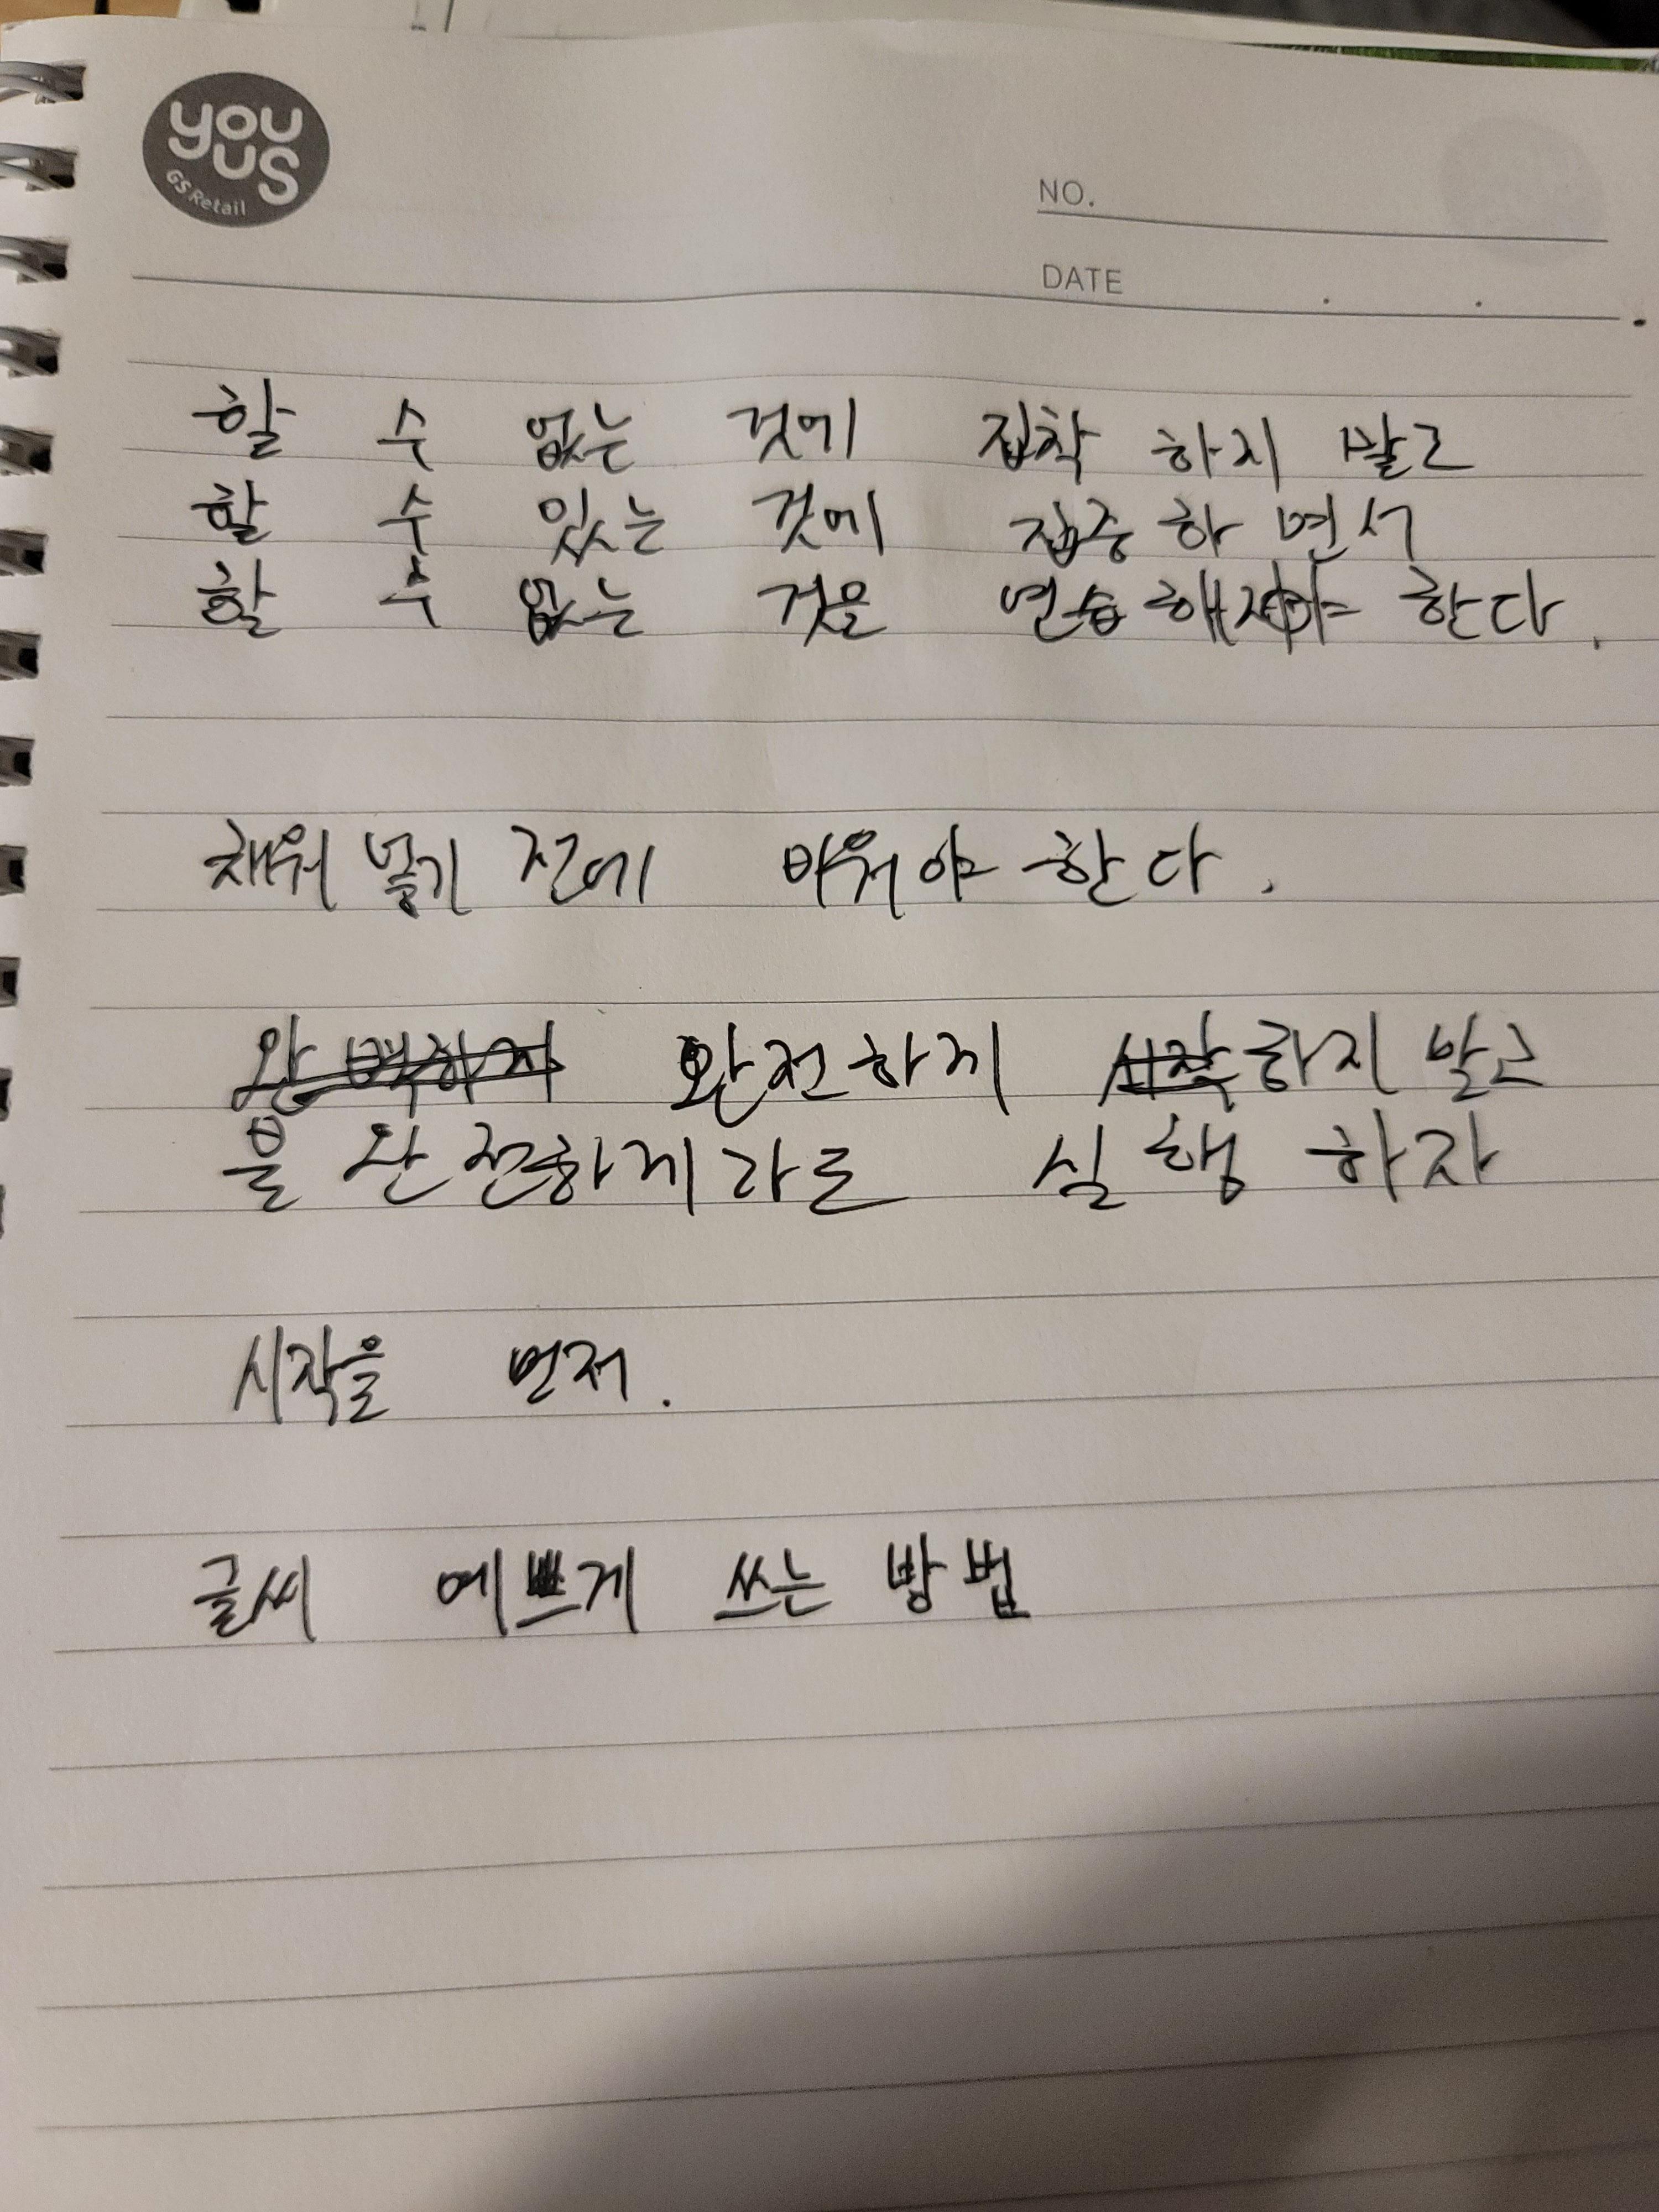 you
us
GS Retail
NO.
DATE . . .
할 수 없는 것에 집착 하지 말고
할 수 있는 것에 집중 하면서
할 수 없는 것을 연습 해 한다.
채워 넣기 전에 비워야 한다.
완벽하지 완전하게 시작하지 말고
불완전하게라도 실행 하자
시작을 먼저.
글씨 예쁘게 쓰는 방법